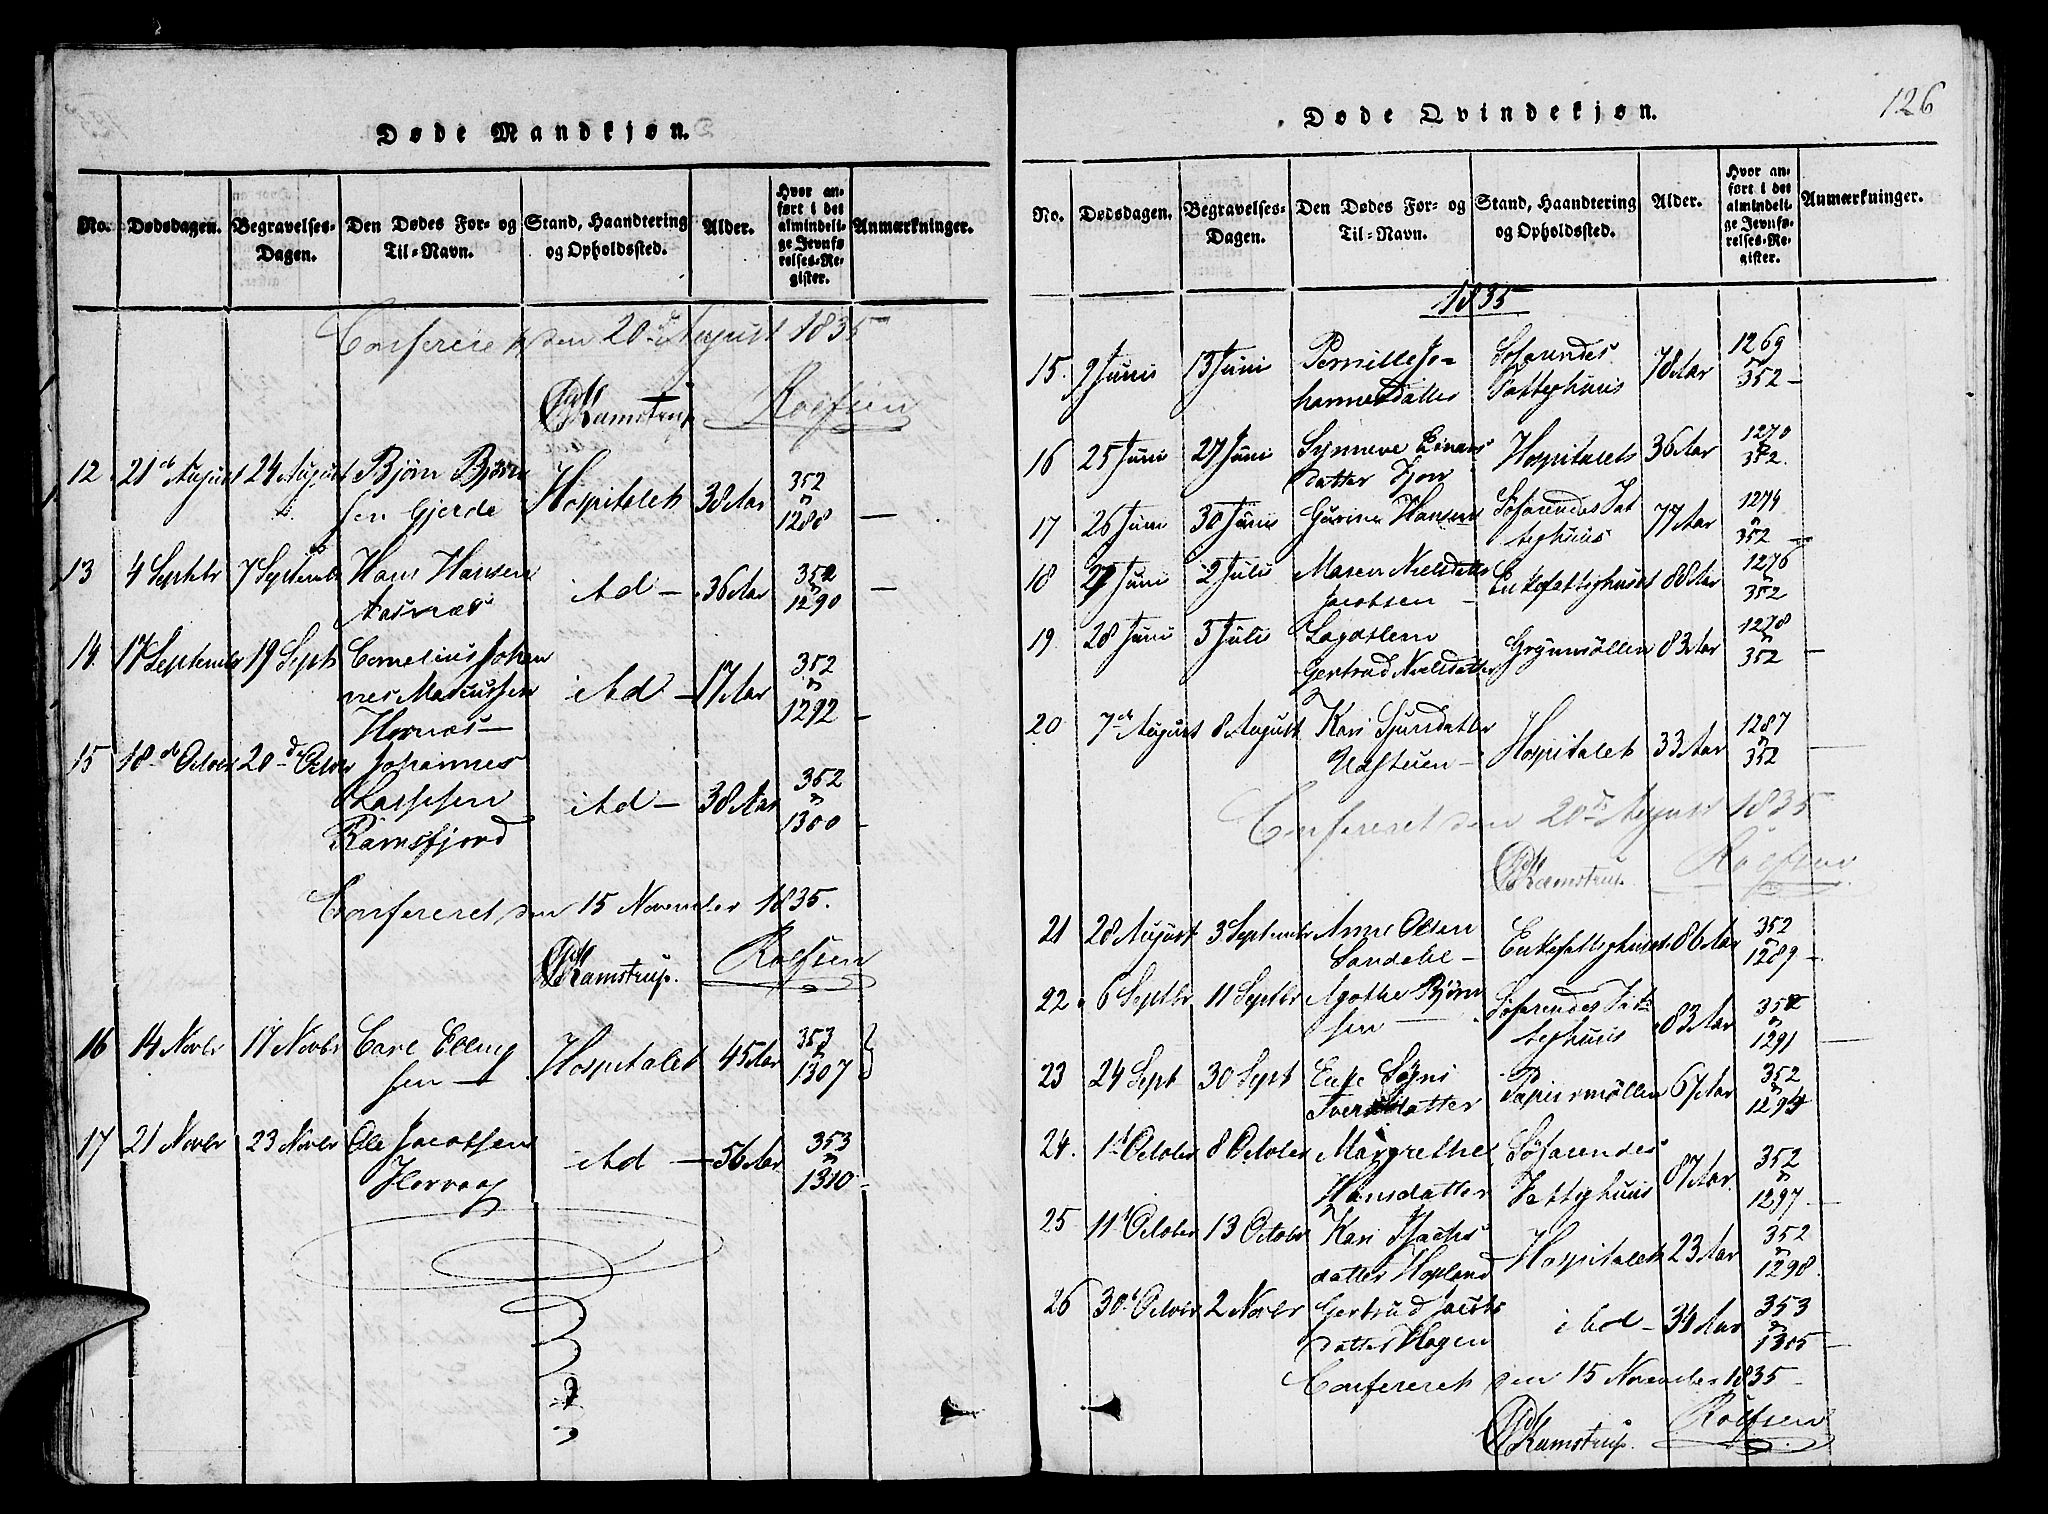 Døde Mandkjøn.
No.
Dødsdagen.
Begravelses-
Dagen.
Den Dødes For- og
Til-Navn.
Stand, Haandtering
og Opholdssted.
Alder.
Hvor an-
ført i det
almindeli-
ge Jevnfø-
relses-Re-
gister.
Anmærkninger.
Confereret den 20de August 1835
Kamstrup Rolfsen
12 21de August 24 August Bjørn Bjørn
sen Gjerde Hospitalet 38 Aar 352
1288
13 4 Septbr 7 Septembr Hans Hansen
Aasnæs ibd 36 Aar 352
1290
14. 17 Septembr 19 Septb Cornelius Johan
nes Marcussen
Hornæs ibd 17 Aar 352
1292
15 18de Octobr 20de Octobr Johannes
Lassesen
Ramsfjord ibd 38 Aar 352
1300
Confereret den 15 November 1835.
Kamstrup. Rolfsen
16 14 Novbr 17 Novbr Carl Elling
sen Hospitalet 45 Aar 353
1307
17 21 Novbr 23 Novbr Ole Jacobsen
Horvaag ibd 56 Aar 353
1310
126
Døde Qvindekjøn.
No.
Dødsdagen.
Begravelses-
Dagen.
Den Dødes For- og
Til-Navn.
Stand, Haandtering
og Opholdssted.
Alder.
Hvor an-
ført i det
almindeli-
ge Jevnfø-
relses-Re-
gister.
Anmærkninger.
1835
15. 9 Junii 13 Juni Pernille Jo-
hannesdatter Søfarendes
Fattighuus 78 Aar 1269
352
16 25 Juni 27 Juni Synneve Einars
datter Hospitalets 36 Aar 1270
352.
17 26 Juni 30 Junii Gurine Hansen Søfarendes Fat
tighuus 77 Aar 1274
352
18 27 Juni 2 Julii Maren Nielsdatter
Jacobsen Enkefattighuset 88 Aar 1276
352
19 28 Juni 3 Julii
Gertrud Nielsdatter Grynmøllen 83 Aar 1278
352
20 7de August 8 August Kari Sjursdatter
Hospitalet 33 Aar 1287
352
Confereret den 20de August 1835
Kamstrup. Rolfsen
21 28 August 3 Septembr Anne Olsen
Enkefattighuset 86 Aar 352
1289
22 6 Septbr 11 Septbr Agothe Bjørn
sen Søfarendes Fat
tighuus 83 Aar 352
1291
23 24 Sept 30 Sept Enke Søgni
Iversdatter Papiirmøllen 67 Aar 352
1294
24. 1de October 8 October Margrethe
Hansdatter Søfarendes
Fattighuus 87 Aar 352
1297
25 11de October 13 Octobr Kari Isachs
datter Hopland Hospitalet 23 Aar 352
1298
26 30de Octobr 2 Novbr Gertrud Jacobs
datter Hagen ibd 34 Aar 353
1305
Confereret den 15 November 1835
Kamstrup. Rolfsen